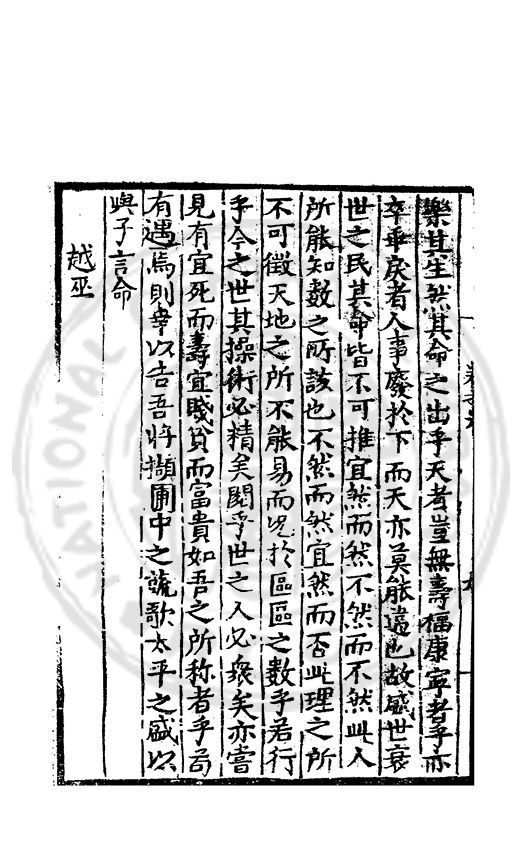 樂其生然其命之出乎天者豈無壽福康寧者乎亦
卒乖戾者人事廢於下而天亦莫能違也故盛世衰
世之民其命皆不可推宜然而然不然而不然此人
所能知數之所該也不然而然宜然而否此理之所
不可徵天地之所不能易而况於區區之數乎若行
乎今之世其操術必精矣閱乎世之人必衆矣亦嘗
見有宜死而壽宜賤貧而富貴如吾之所称者乎苟
有遇焉則幸以告吾將擷圃中之蔬歌太平之盛以
與子言命
越巫
NATIONAL